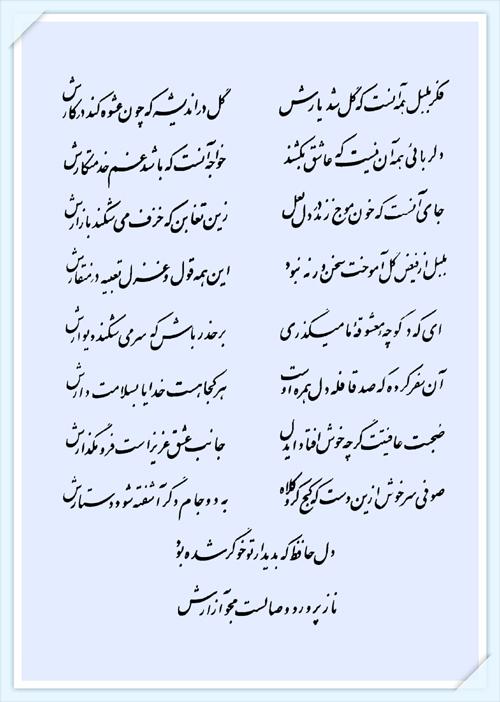 فکر بلبل همه آنست که گل شد یارش گل در اندیشه که چون عشوه کند در کارش
دلربائی همه آن نیست که عاشق بکشند خواجه آنست که باشد غم خدمتکارش
جای آنست که خون موج زند در دل لعل زین تغابن که خزف می‌شکند بازارش
بلبل از فیض گل آموخت سخن ورنه نبود این همه قول و غزل تعبیه در منقارش
ای که در کوچه معشوقهٔ ما میگذری بر حذر باش که سر می‌شکند دیوارش
آن سفر کرده که صد قافله دل همره اوست هر کجا هست خدایا بسلامت دارش
صحبت عافیتت گرچه خوش افتاد ایدل جانب عشق عزیز است فرو مگذارش
صوفی سرخوش ازین دست که کج کرد کلاه به دو جام دگر آشفته شود دستارش
دل حافظ که بدیدار تو خوگر شده بود
ناز پرورد وصالست مجو آزارش